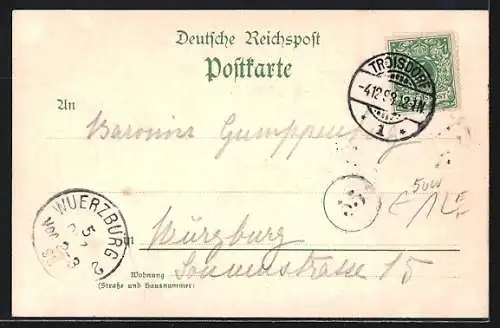 Deutsche Reichspost
Postkarte
TROISDORF
-4.12.98.12-1N.
* 1 *
An
Baronin Gumppenberg
WUERZBURG 2
5
in Würzburg
Wohnung Sonnenstrasse 15
(Straße und Hausnummer)